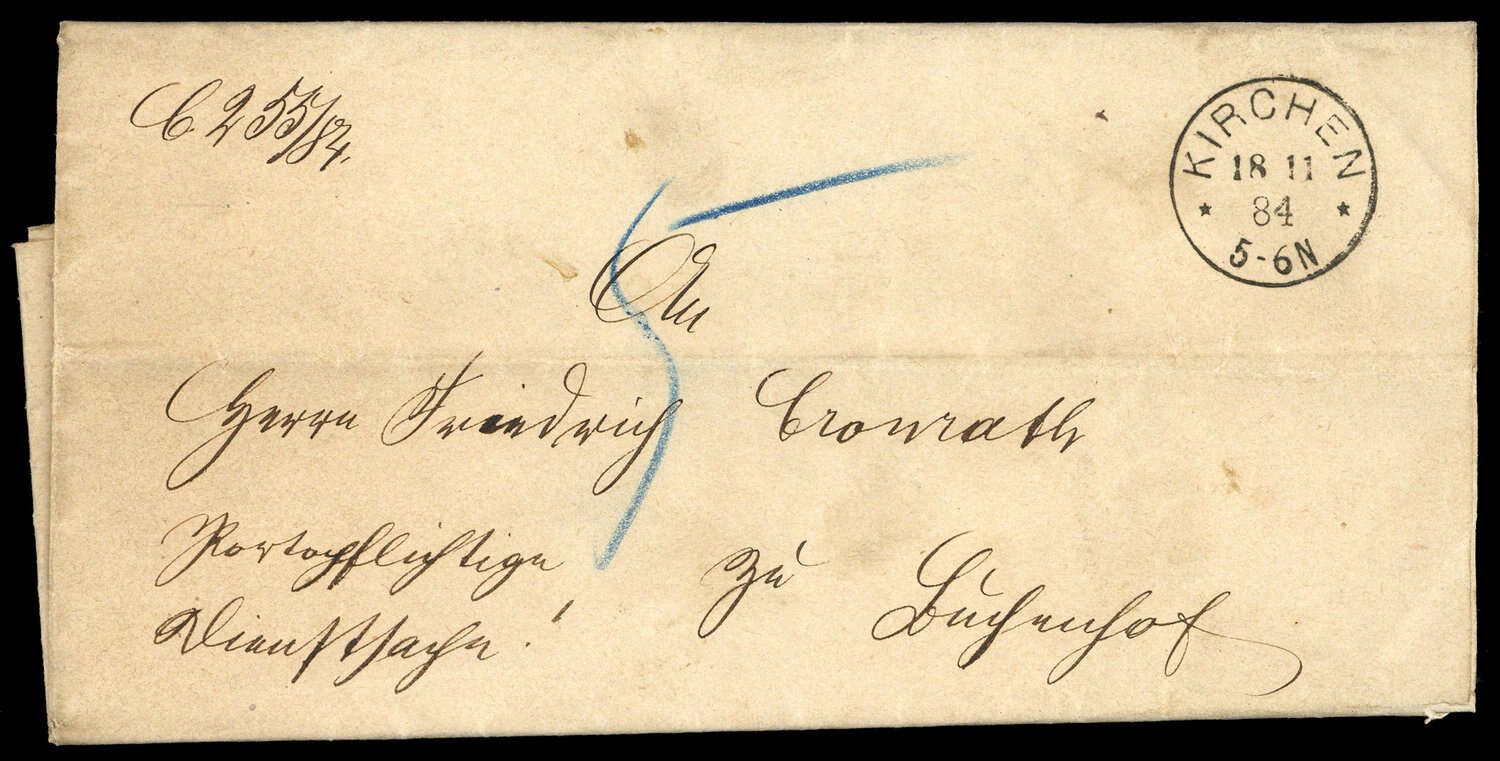 C. 255/84.
KIRCHEN
18 11
84
5-6N
5
An
Herrn Friedrich Cronrath
Portopflichtige
Dienstsache!
zu Buchenhof